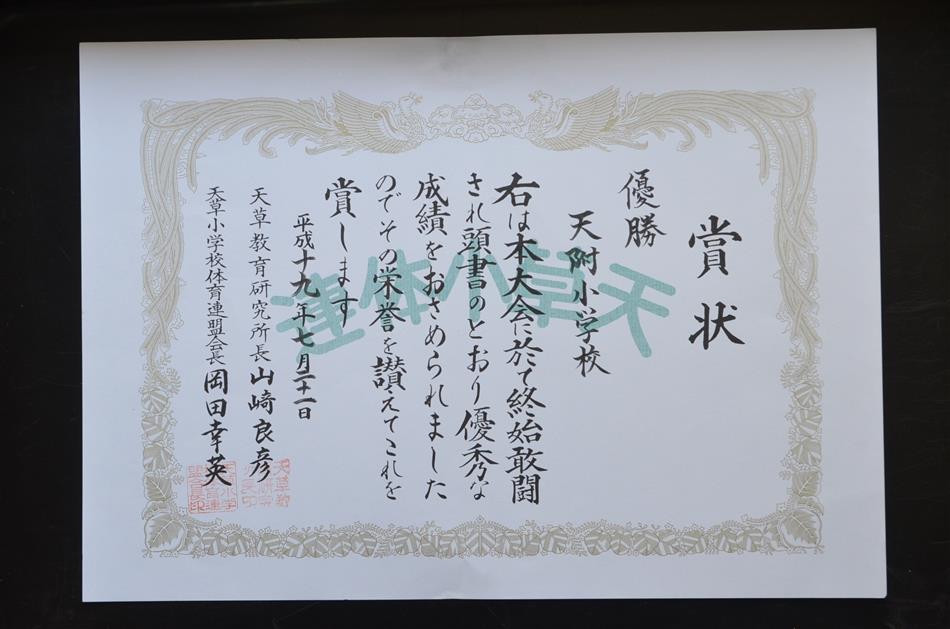 賞状
優勝
天附小学校
右は本大会に於て終始敢闘
され頭書のとおり優秀な
成績をおさめられました
のでその栄誉を讃えてこれを
賞します
平成十九年七月二十一日
天草教育研究所長 山崎良彦
天草小学校体育連盟会長 岡田幸英
天草小体連